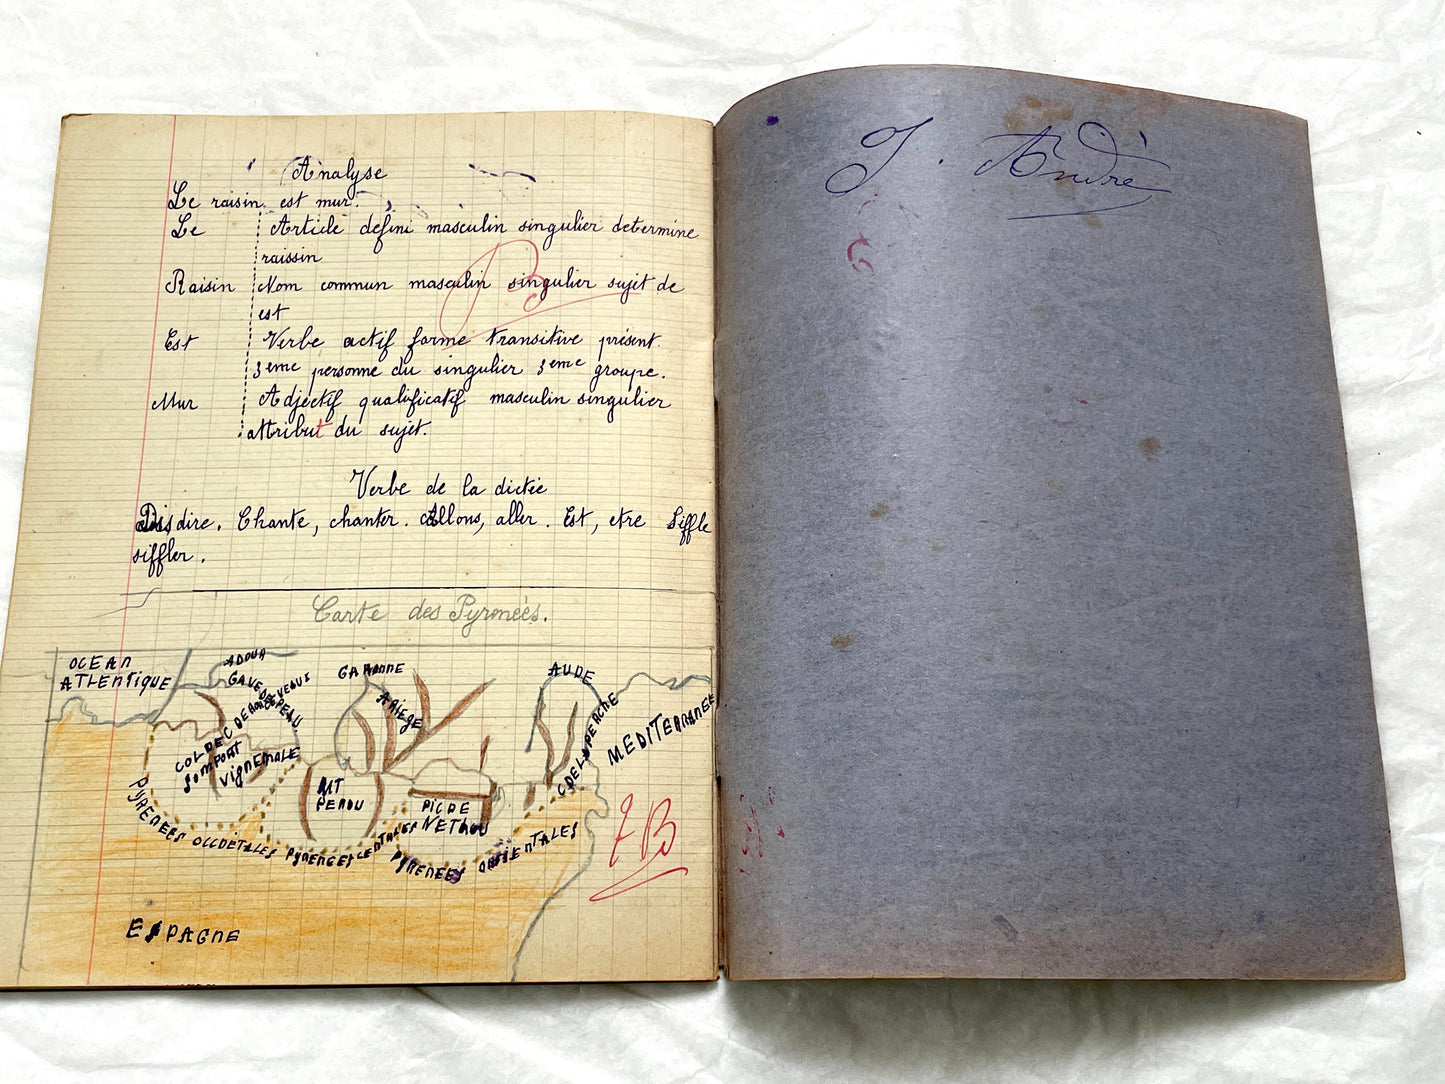 Analyse
Le raisin est mur.
Le Article défini masculin singulier determine
raissin
Raisin Nom commun masculin singulier sujet de
est
Est Verbe actif forme transitive présent
3eme personne du singulier 3eme groupe.
Mur Adjectif qualificatif masculin singulier
attribut du sujet.
B
Verbe de la dictée
Dis, dire. Chante, chanter. Allons, aller. Est, etre Siffle
siffler.
Carte des Pyrénées.
OCEAN
ATLENTIQUE
ADOUR
GAVE DE
GARONNE
ARIEGE
AUDE
MEDITERRANEE
COL DE
SOMPORT
VIGNEMALE
MT
PERDU
PIC DE
NETHOU
C DE LA PERCHE
PYRENEES OCCDÉTALES
PYRENEES CENTALES
PYRENEES ORIENTALES
ESPAGNE
TB
J. André